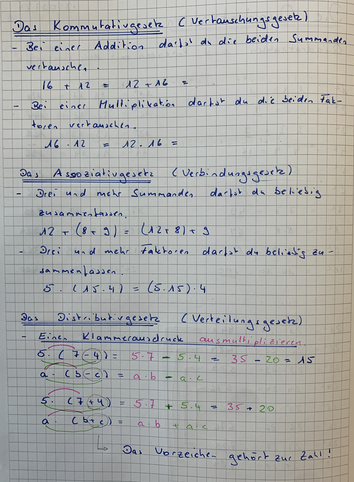 Das Kommutativgesetz (Vertauschungsgesetz)
- Bei einer Addition darfst du die beiden Summanden
vertauschen.
16 + 12 = 12 + 16 =
- Bei einer Multiplikation darfst du die beiden Fak-
toren vertauschen.
16 · 12 = 12 · 16 =
Das Assoziativgesetz (Verbindungsgesetz)
- Drei und mehr Summanden darfst du beliebig
zusammenfassen.
12 + (8 + 9) = (12 + 8) + 9
- Drei und mehr Faktoren darfst du beliebig zu-
sammenfassen.
5 · (15 · 4) = (5 · 15) · 4
Das Distributivgesetz (Verteilungsgesetz)
- Einen Klammerausdruck ausmultiplizieren
5 · (7 - 4) = 5 · 7 - 5 · 4 = 35 - 20 = 15
a · (b - c) = a · b - a · c
5 · (7 + 4) = 5 · 7 + 5 · 4 = 35 + 20
a · (b + c) = a b + a c
↳ Das Vorzeichen gehört zur Zahl!